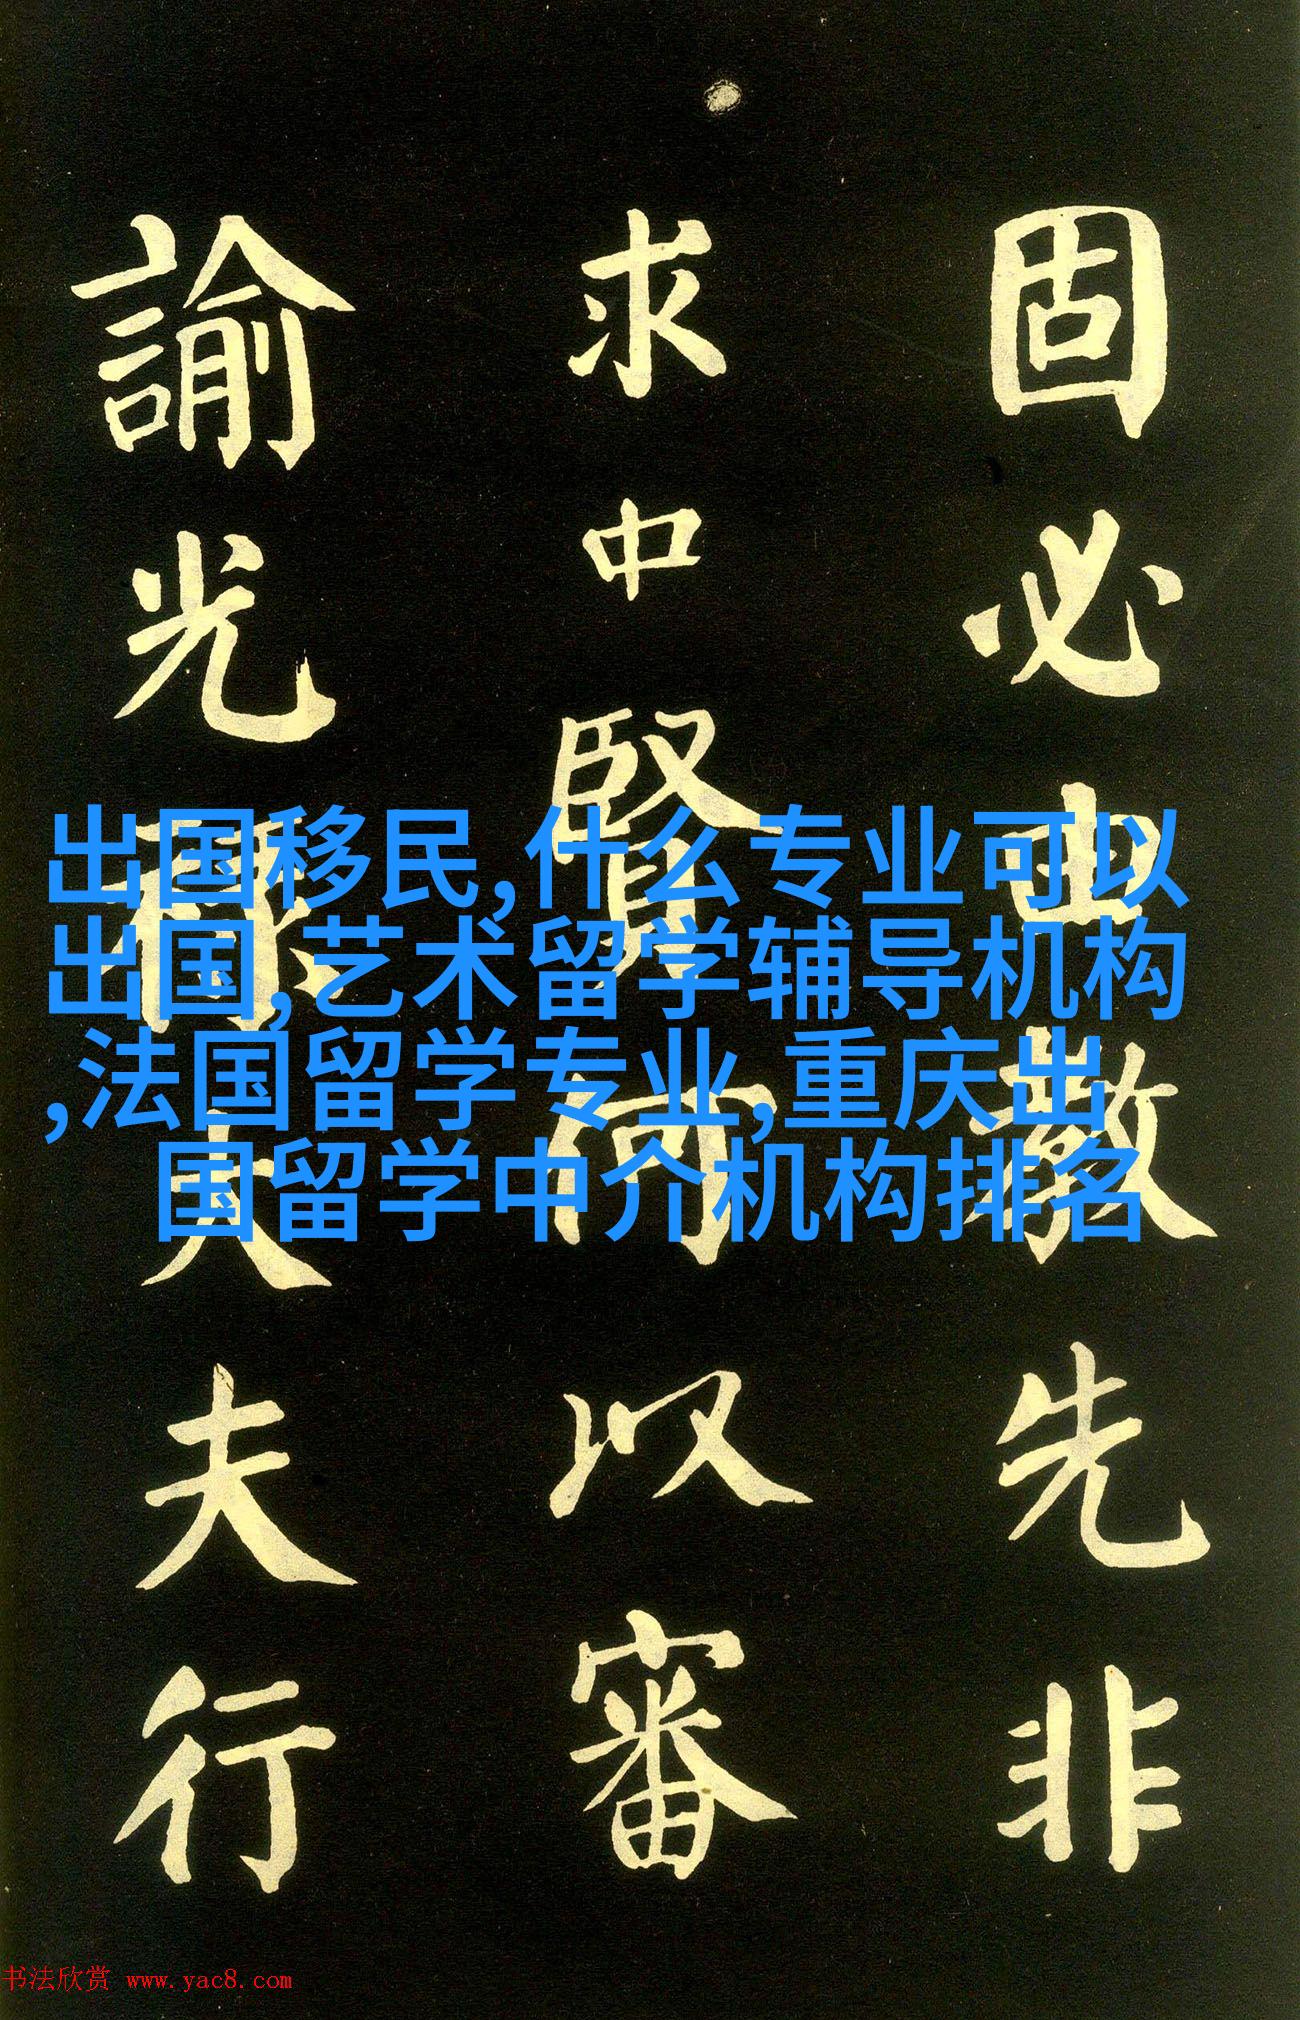 固必由教先非
求中賢何以審
諭光禄大夫行
出国移民,什么专业可以
出国,艺术留学辅导机构
,法国留学专业,重庆出
国留学中介机构排名
书法欣赏 www.yac8.com